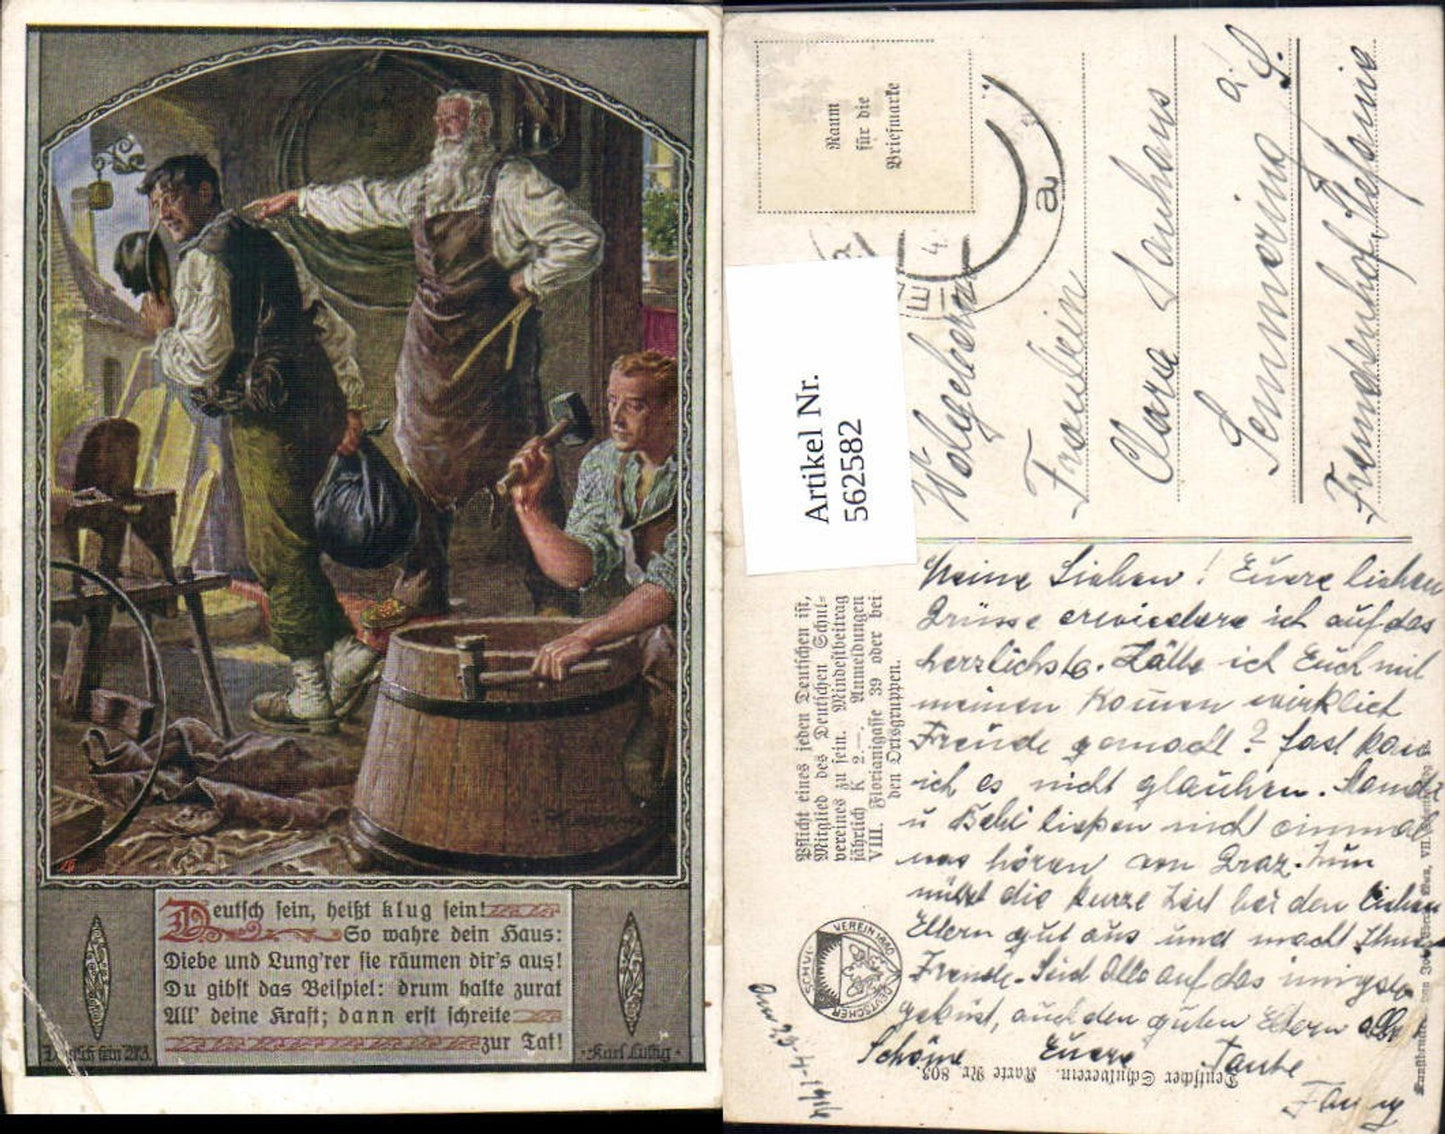 Deutsch sein, heißt klug sein!
So wahre dein Haus:
Diebe und Lung'rer sie räumen dir's aus!
Du gibst das Beispiel: drum halte zurat
All' deine Kraft; dann erst schreite
zur Tat!
Deutsch sein 203.
·Karl Lustig·
Raum
für die
Briefmarke
WIEN
4.
a
Artikel Nr.
562582
Wohlgeboren
Fräulein
Clara
Semmering a. S.
Fremdenhof Stefanie
Pflicht eines jeden Deutschen ist,
Mitglied des Deutschen Schul-
vereines zu sein. Mindestbeitrag
jährlich K 2.—. Anmeldungen
VIII. Florianigasse 39 oder bei
den Ortsgruppen.
Meine Lieben! Euere lieben
Grüsse erwiedere ich auf das
herzlichste. Hätte ich Euch mit
meinen Komen wirklich
Freude gemacht? fast kann
ich es nicht glauben.
u ließen nicht einmal
was hören von Graz. Nun
nützt die kurze Zeit bei den lieben
Eltern gut aus und macht Ihnen
Freude. Seid Alle auf das innigste
geküsst, auch den guten Eltern alles
Schöne Euere Tante
Fanny
DEUTSCHER SCHULVEREIN 1880
Deutscher Schulverein. Karte Nr 803.